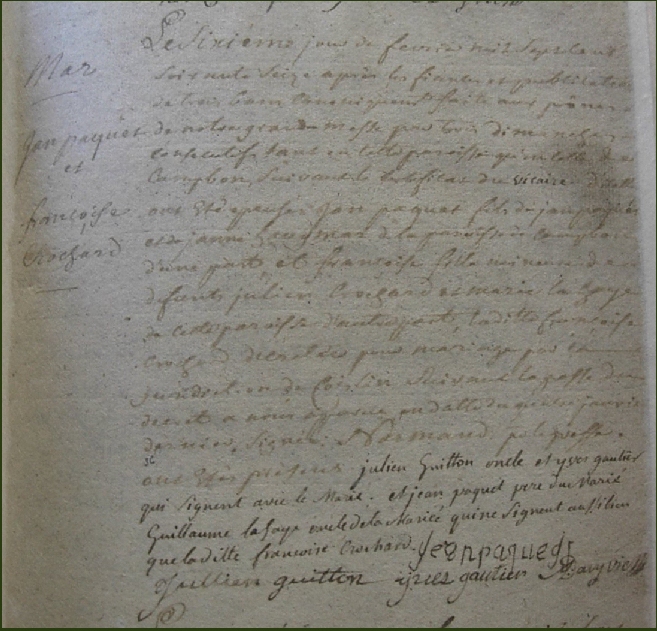 Le sixiéme jour de fevrier mil sept cent
Mar
soixante seize aprés les fiances et publications
de trois bans canoniquement faite aux prônes
Jan paquet
de notre grande messe par trois dimanches
et
consecutifs tant en cette paroisse qu'en celle de
Campbon, suivant le certificat du vicaire
françoise
ont eté epousés Jan paquet fils de jan paquet
Crochard
et de janne de la paroisse de Campbon
d'une part, et francoise fille mineure de
defunts julien Crochard et marie la faye
de cette paroisse d'autre part, laditte francoise
Crochard decretée pour mariage par la
jurisdiction de Coislin suivant
decret a nous en datte du quatre janvier
dernier, signée Normand, pr le greffe.
ont etés présens julien Guitton oncle et yves gautier
qui signent avec le Marié. et jean paquet pere du Marié
Guillaume la faye oncle de la Mariée qui ne signent aussi bien
que laditte francoise Crochard. jean paquet
Jullien guitton yves gautier